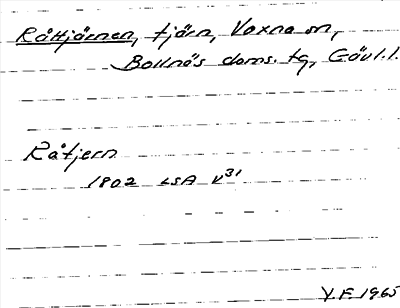 Råttjärnen, tjärn, Voxna sn,
Bollnäs doms. tg, Gävl. l.
Råtjern
1802 LSA V31
V.F. 1965